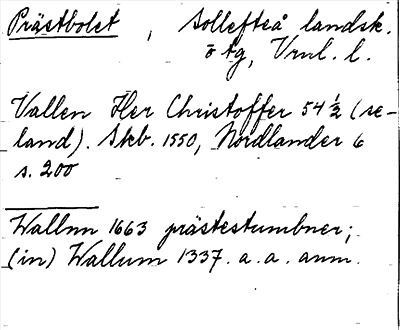 Prästbolet , Sollefteå landsk.
o tg, Vrnl. l.
Vallen Her Christoffer 54 ½ (se-
land). Skb. 1550, Nordlander 6
s. 200
Wallnn 1663 prästestumbner;
(in) Wallum 1337. a. a. anm.